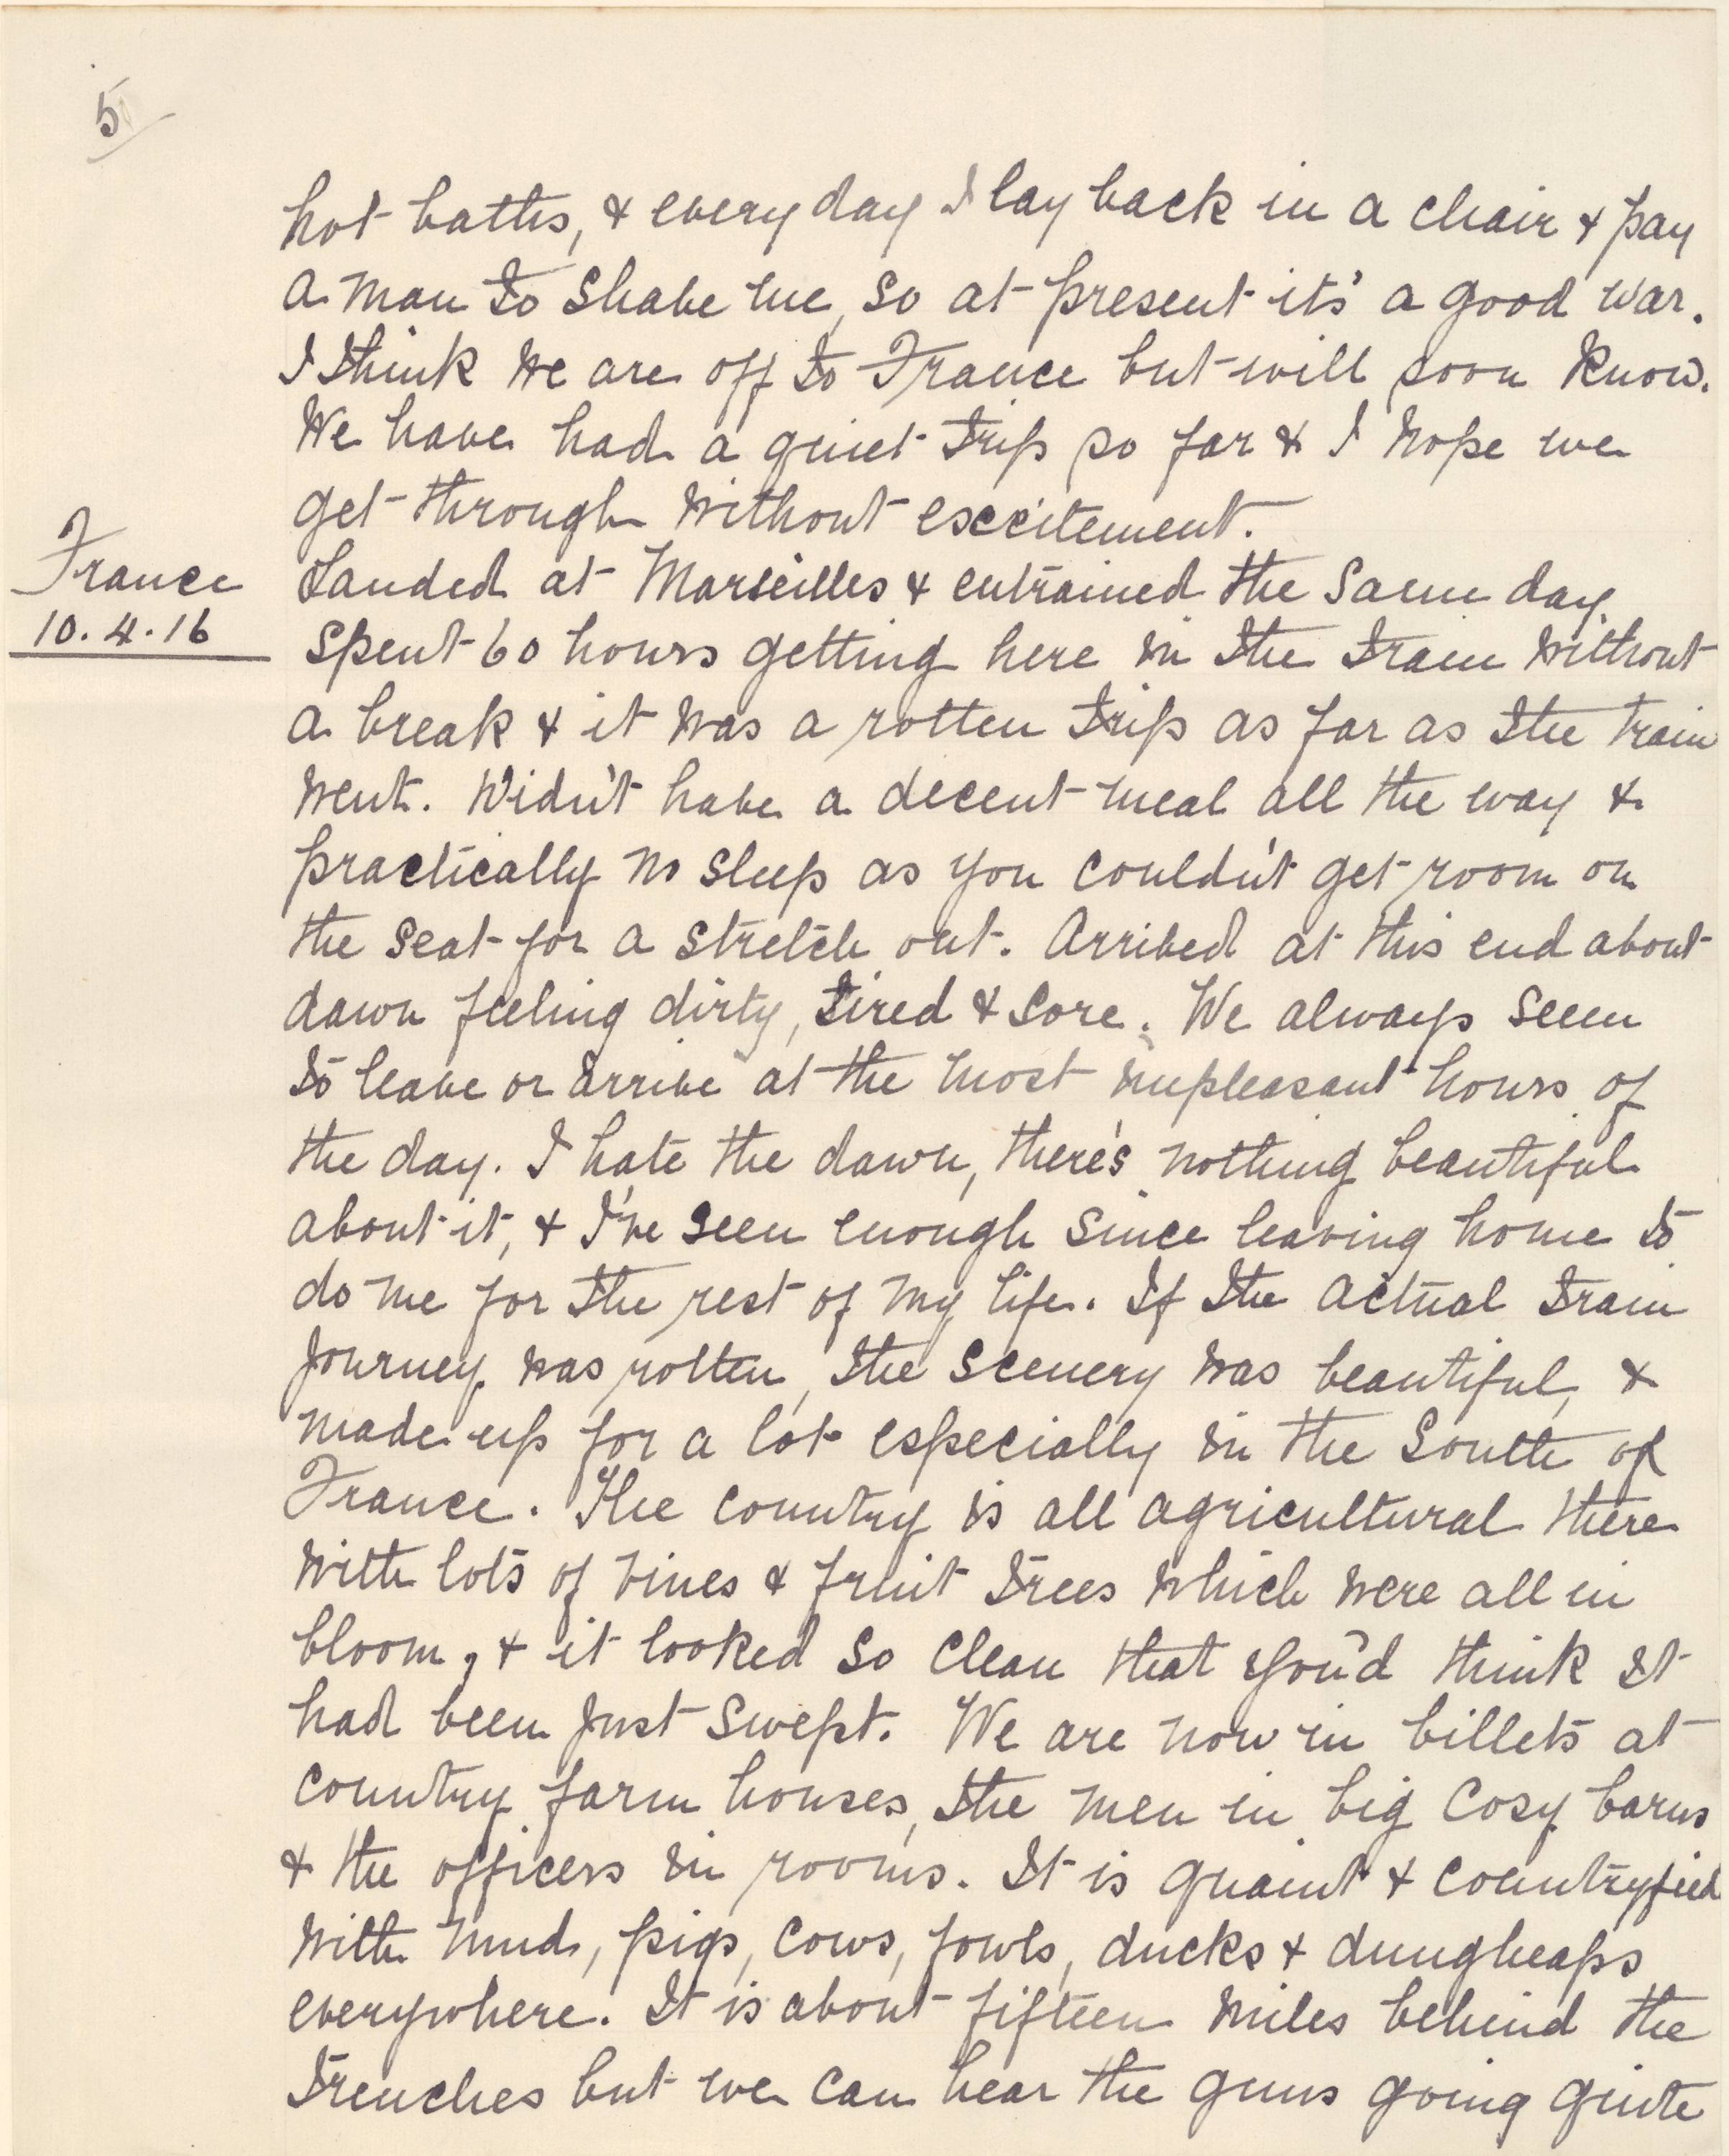 5
hot baths, & every day I lay back in a chair & pay
a man to shave me, so at present it's a good war.
I think we are off to France but will soon know.
We have had a quiet trip so far & I hope we
get through without excitement.
France
10.4.16
Landed at Marseilles & entrained the same day
spent 60 hours getting here in the train without
a break & it was a rotten trip as far as the train
went. Didn't have a decent meal all the way &
practically no sleep as you couldn't get room on
the seat for a stretch out. Arrived at this end about
dawn feeling dirty, tired & sore. We always seem
to leave or arrive at the most unpleasant hours of
the day. I hate the dawn, there's nothing beautiful
about it, & I've seen enough since leaving home to
do me for the rest of my life. If the actual train
journey was rotten, the scenery was beautiful, &
made up for a lot especially in the South of
France. The country is all agricultural there
with lots of vines & fruit trees which were all in
bloom, & it looked so clean that you'd think it
had been just swept. We are now in billets at
country farm houses, the men in big cosy barns
& the officers in rooms. It is quaint & countryfied
with mud, pigs, cows, fowls, ducks & dungheaps
everywhere. It is about fifteen miles behind the
trenches but we can hear the guns going quite